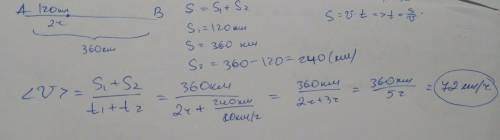 A 120км B
2ч
360км
S = S₁ + S₂
S₁ = 120км
S = 360 км
S₂ = 360 - 120 = 240 (км)
S = v · t => t = S/v
<v> = (S₁ + S₂)/(t₁ + t₂) = 360км/(2ч + 240км/80км/ч) = 360км/(2ч+3ч) = 360км/5ч = 72 км/ч